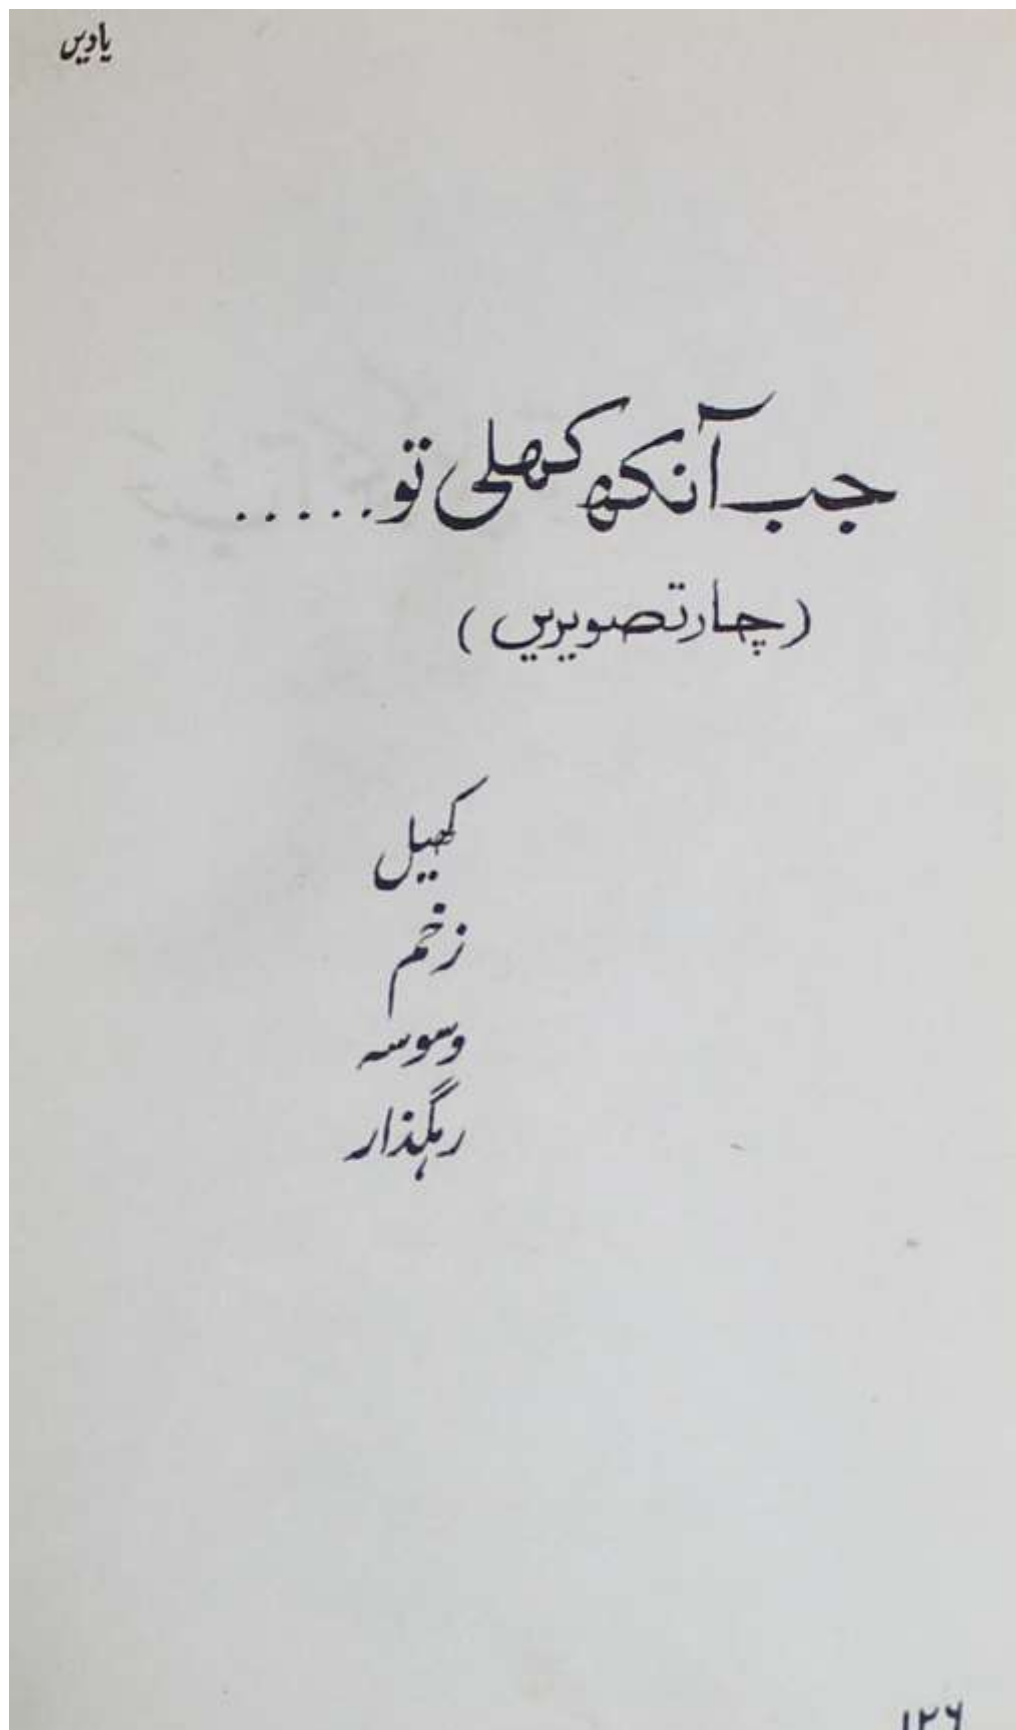 یادیں
جب آنکھ کھلی تو.....
(چار تصویریں)
کھیل
زخم
وسوسہ
رہگذار
۱۲۶